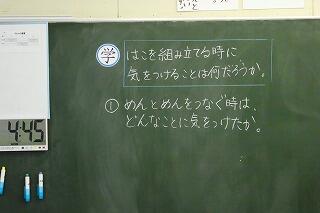 学
はこを組み立てる時に
気をつけることは何だろうか。
① めんとめんをつなぐ時は、
どんなことに気をつけたか。
4:45